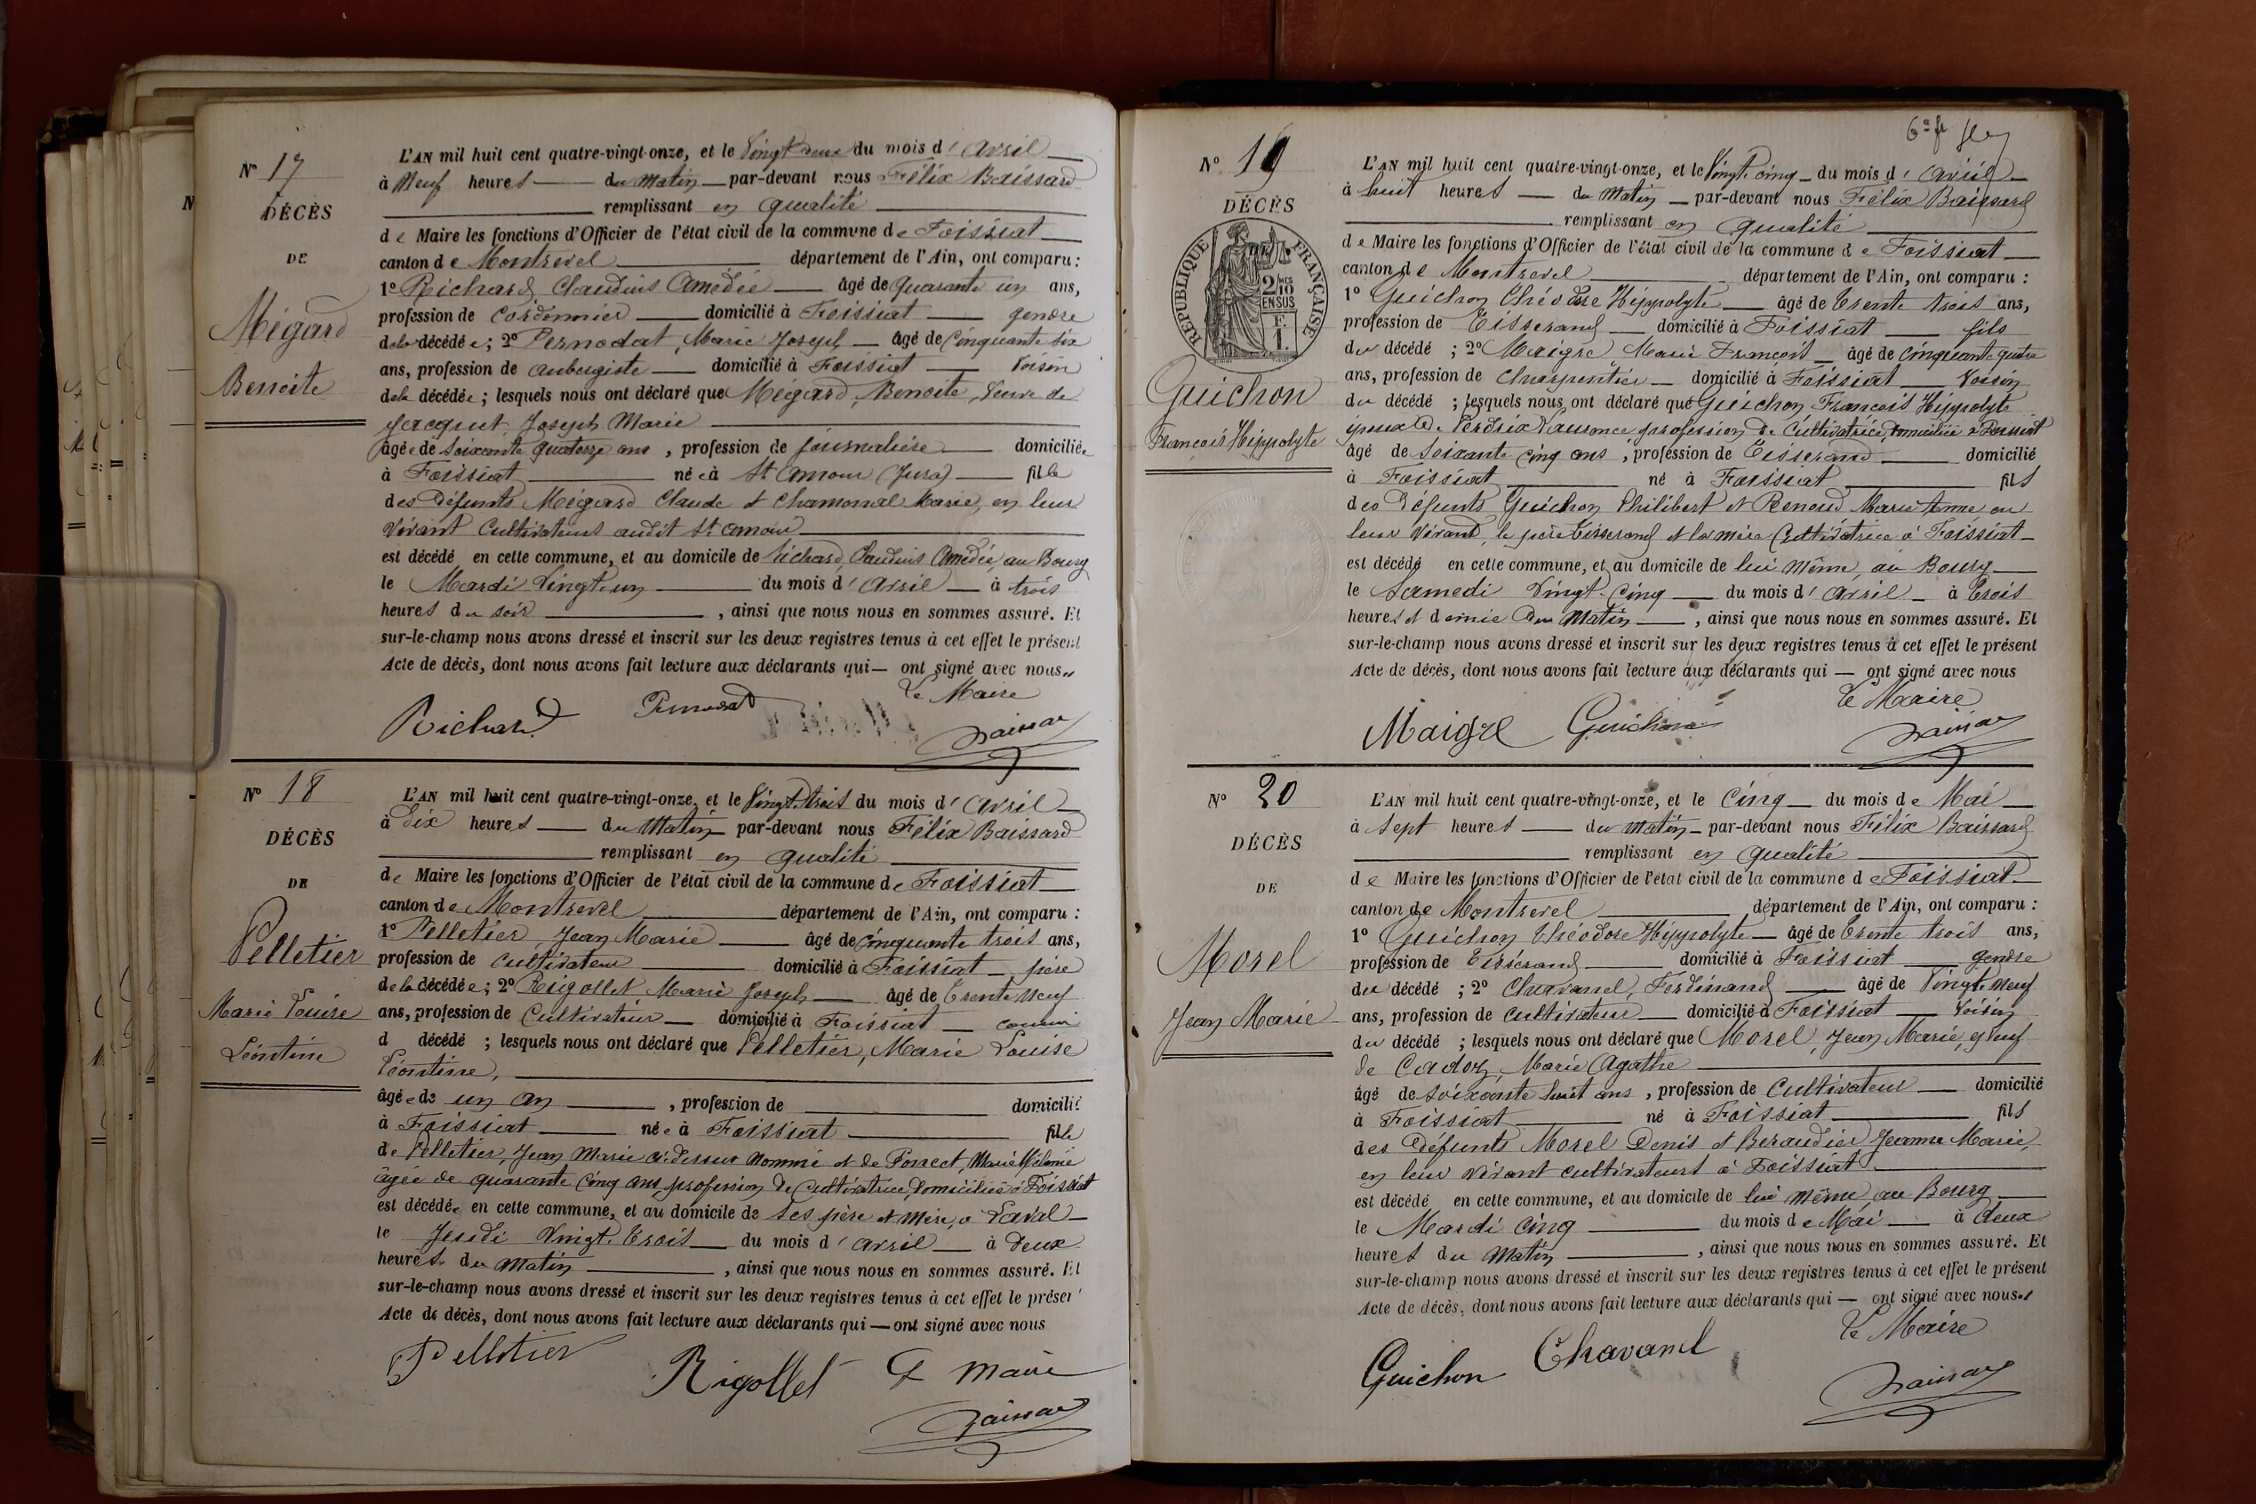 N° 17
DÉCÈS
DE
Mégard
Benoite
L'AN mil huit cent quatre-vingt-onze, et le Vingt deux du mois d' Avril
à Neuf heures du Matin par-devant nous Félix Baissard
remplissant en qualité
de Maire les fonctions d'Officier de l'état civil de la commune de Foissiat
canton de Montrevel département de l'Ain, ont comparu :
1° Richard Claudius Amédée âgé de Quarante un ans,
profession de Cordonnier domicilié à Foissiat gendre
de la décédée ; 2° Pernodat, Marie Joseph âgé de Cinquante six
ans, profession de aubergiste domicilié à Foissiat Voisin
de la décédée ; lesquels nous ont déclaré que Mégard, Benoite, Veuve de
Jacquet Joseph Marie
âgée de Soixante quatorze ans, profession de journalière domiciliée
à Foissiat née à St Amour (Jura) fille
des Défunts Mégard Claude et Chamonal Marie, en leur
Vivant Cultivateurs audit St Amour
est décédé en cette commune, et au domicile de Richard, Claudius Amédée, au Bourg
le Mardi Vingt un du mois d' Avril à trois
heures du soir, ainsi que nous nous en sommes assuré. Et
sur-le-champ nous avons dressé et inscrit sur les deux registres tenus à cet effet le présent
Acte de décès, dont nous avons fait lecture aux déclarants qui — ont signé avec nous
Le Maire
Richard Pernodat
Baissard
N° 18
DÉCÈS
DE
Pelletier
Marie Louise
Léontine
L'AN mil huit cent quatre-vingt-onze, et le Vingt trois du mois d' Avril
à Dix heures du Matin par-devant nous Félix Baissard
remplissant en qualité
de Maire les fonctions d'Officier de l'état civil de la commune de Foissiat
canton de Montrevel département de l'Ain, ont comparu :
1° Pelletier, Jean Marie âgé de cinquante trois ans,
profession de Cultivateur domicilié à Foissiat père
de la décédée ; 2° Rigollet Marie Joseph âgé de Trente Neuf
ans, profession de Cultivateur domicilié à Foissiat cousin
d décédé ; lesquels nous ont déclaré que Pelletier, Marie Louise
Léontine,
âgée de un an, profession de domicilié
à Foissiat née à Foissiat fille
de Pelletier, Jean Marie ci-dessus Nommé et de Poncet, Marie Mélanie
âgée de quarante Cinq ans, profession de Cultivatrice, Domiciliée à Foissiat
est décédée en cette commune, et au domicile de ses père et Mère, à Laval
le Jeudi Vingt Trois du mois d' Avril à Deux
heures du Matin, ainsi que nous nous en sommes assuré. Et
sur-le-champ nous avons dressé et inscrit sur les deux registres tenus à cet effet le présen
Acte de décès, dont nous avons fait lecture aux déclarants qui — ont signé avec nous
Pelletier Rigollet Le Maire
Baissard
N° 19
DÉCÈS
RÉPUBLIQUE FRANÇAISE
2 mes
10
EN SUS
Guichon
François Hippolyte
L'AN mil huit cent quatre-vingt-onze, et le Vingt Cinq du mois d' Avril
à huit heures du Matin par-devant nous Félix Baissard
remplissant en qualité
de Maire les fonctions d'Officier de l'état civil de la commune de Foissiat
canton de Montrevel département de l'Ain, ont comparu :
1° Guichon Théodore Hippolyte âgé de Trente trois ans,
profession de Tisserand domicilié à Foissiat fils
du décédé ; 2° Maigre Marie François âgé de Cinquante quatre
ans, profession de Charpentier domicilié à Foissiat Voisin
du décédé ; lesquels nous ont déclaré que Guichon François Hippolyte
époux de Perdrix Laurence, profession de Cultivatrice, domiciliée à Foissiat
âgé de Soixante cinq ans, profession de Tisserand domicilié
à Foissiat né à Foissiat fils
des Défunts Guichon Philibert et Renoud Marie Anne en
leur Vivant, le père tisserand et la mère Cultivatrice à Foissiat
est décédé en cette commune, et au domicile de lui même, au Bourg
le Samedi Vingt Cinq du mois d' Avril à Trois
heures et demie du Matin, ainsi que nous nous en sommes assuré. Et
sur-le-champ nous avons dressé et inscrit sur les deux registres tenus à cet effet le présent
Acte de décès, dont nous avons fait lecture aux déclarants qui — ont signé avec nous
Le Maire
Maigre Guichon
Baissard
N° 20
DÉCÈS
DE
Morel
Jean Marie
L'AN mil huit cent quatre-vingt-onze, et le Cinq du mois de Mai
à Sept heures du Matin par-devant nous Félix Baissard
remplissant en qualité
de Maire les fonctions d'Officier de l'état civil de la commune de Foissiat
canton de Montrevel département de l'Ain, ont comparu :
1° Guichon Théodore Hippolyte âgé de Trente trois ans,
profession de Tisserand domicilié à Foissiat gendre
du décédé ; 2° Chavanel, Ferdinand âgé de Vingt Neuf
ans, profession de Cultivateur domicilié à Foissiat Voisin
du décédé ; lesquels nous ont déclaré que Morel, Jean Marie, Veuf
de Cadoz, Marie Agathe
âgé de Soixante huit ans, profession de Cultivateur domicilié
à Foissiat né à Foissiat fils
des Défunts Morel Denis et Beraudier Jeanne Marie,
en leur Vivant cultivateurs à Foissiat
est décédé en cette commune, et au domicile de lui même, au Bourg
le Mardi Cinq du mois de Mai à Deux
heures du Matin, ainsi que nous nous en sommes assuré. Et
sur-le-champ nous avons dressé et inscrit sur les deux registres tenus à cet effet le présent
Acte de décès, dont nous avons fait lecture aux déclarants qui — ont signé avec nous
Le Maire
Guichon Chavanel
Baissard